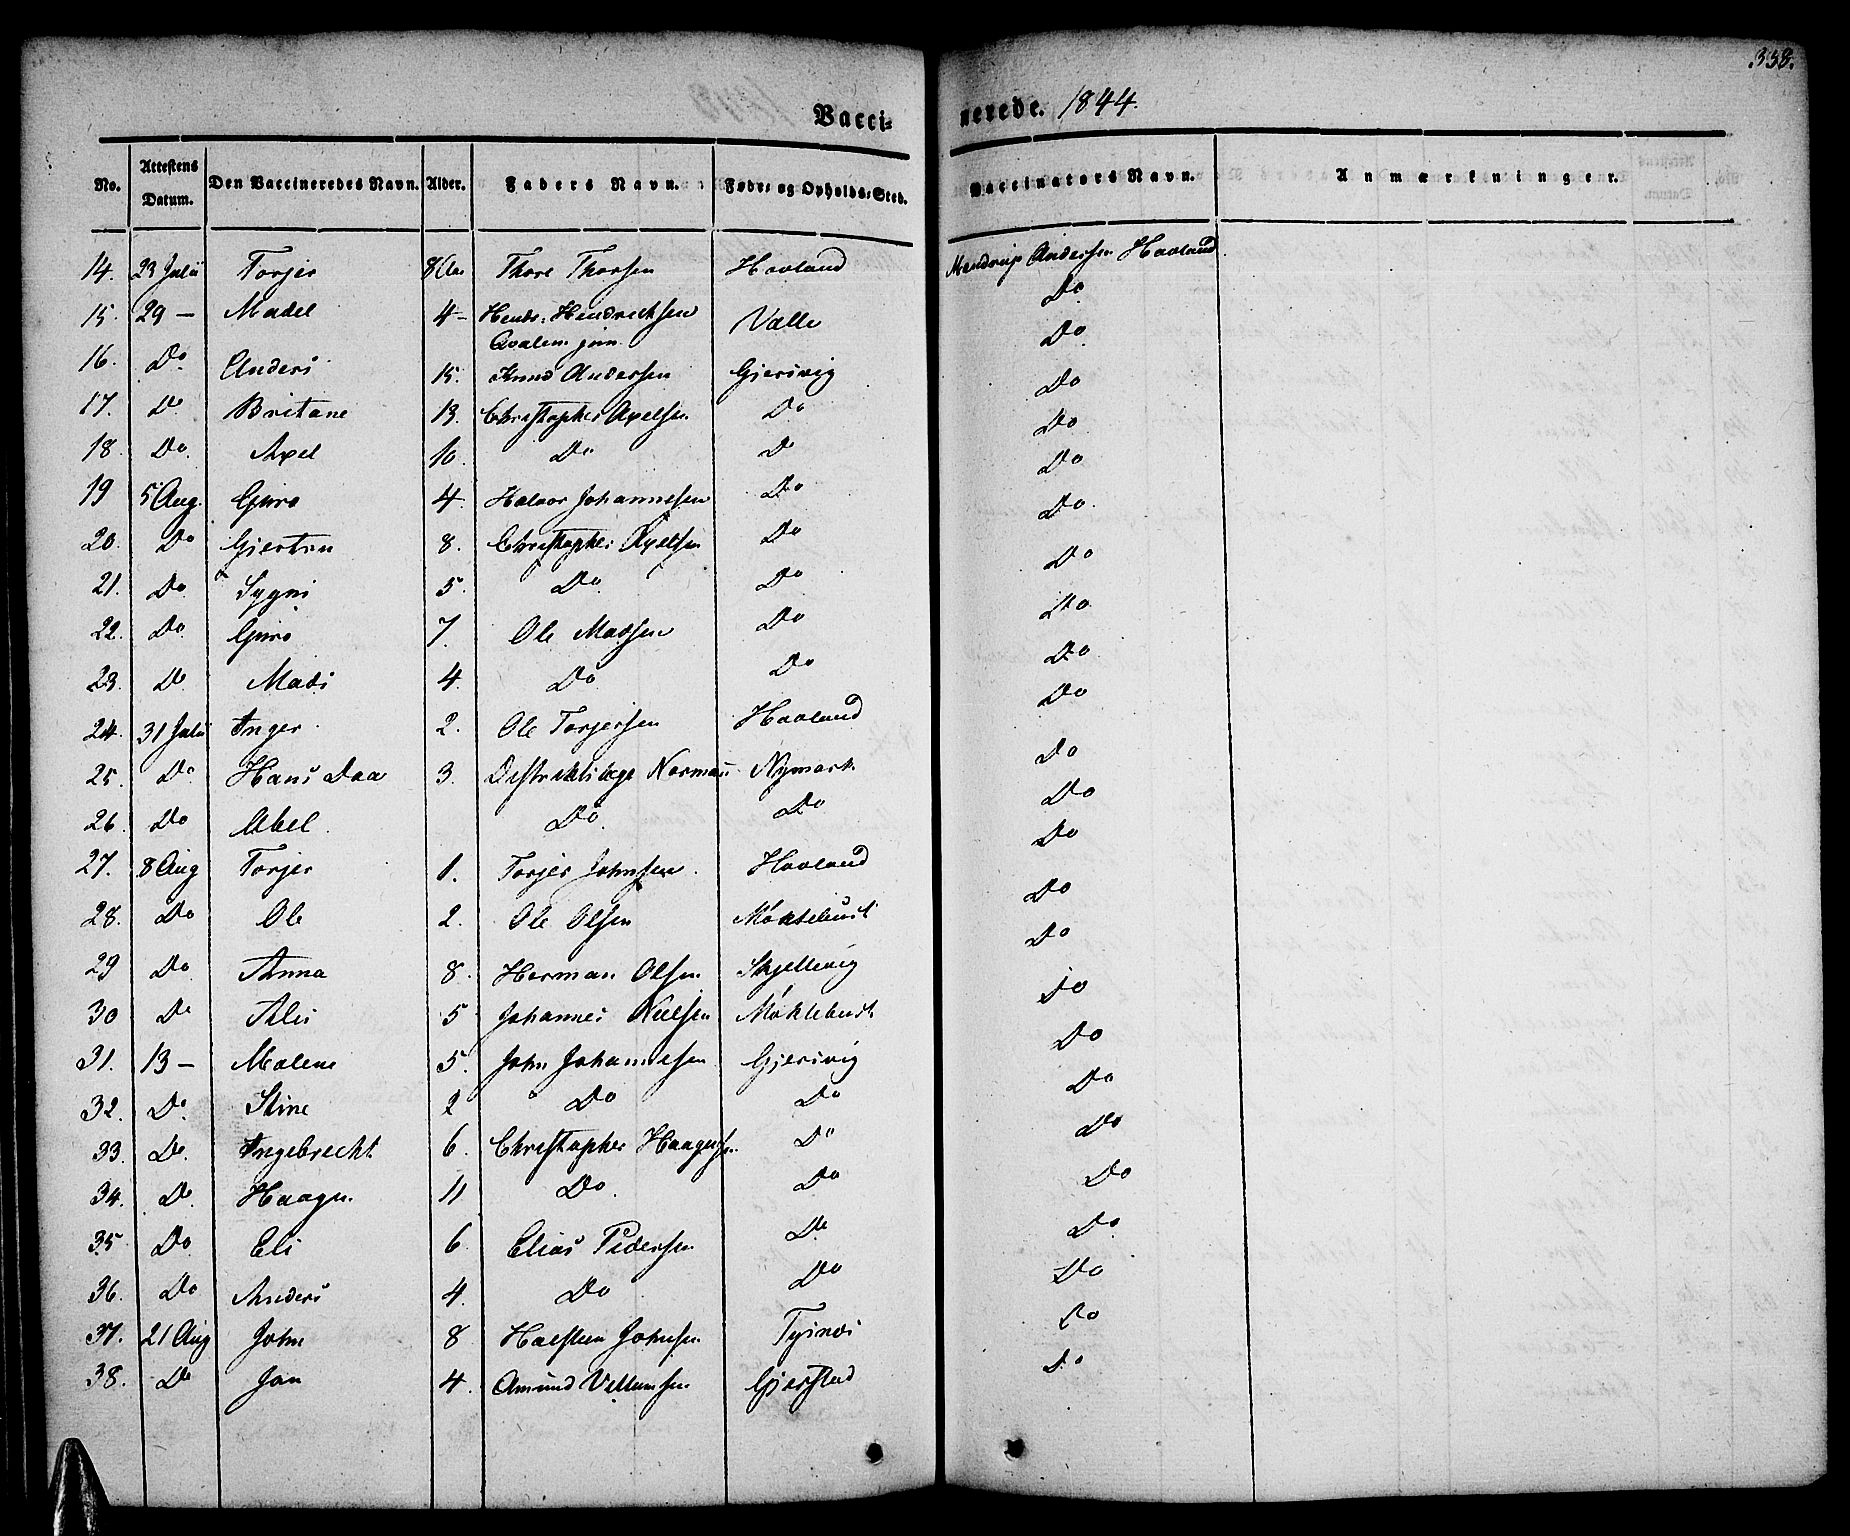 338.
Vaccinerede. 1844.
No. Attestens Datum. Den Vaccineredes Navn. Alder. Faders Navn. Føde- og Opholds-Sted. Vaccinators Navn. Anmærkninger.
14. 23 Julii Torjer 8 Aar Thore Thorsen Havland Mandrup Andersen Havland
15. 29 — Madel 4 - Hendr: Hendrichsen Qvalem jun. Valle Do
16. Do Anders 15. Knud Andersen Gjersvig Do
17. Do Britane 13. Christopher Axelsen Do Do
18. Do Axel 10. Do Do Do
19 5 Aug. Guro 4 Halvor Johannesen Do Do
20. Do Giertru 8. Christopher Axelsen Do Do
21. Do Sygni 5. Do Do Do
22. Do Guro 7. Ole Madsen Do Do
23. Do Mads 4. Do Do Do
24. 31 Julii Inger 2. Ole Torjersen Havland Do
25. Do Hans Daa 3. Distriktslæge Norman Nymark Do
26. Do Abel Do Do Do
27. 8 Aug Torjer 1. Torjer Johnsen Havland Do
28. Do Ole 2. Ole Olsen Møklebust Do
29 Do Anna 8. Herman Olsen Skjellevig Do
30 Do Alis 5 Johannes Nielsen Møklebust Do
31. 13 — Malene 5. John Johannesen Gjersvig Do
32. Do Stine 2 Do Do Do
33. Do Ingebrecht 6. Christopher Haagens. Do Do
34. Do Haagen 11 Do Do Do
35 Do Eli 6 Elias Pedersen Do Do
36. Do Anders 4. Do Do Do
37. 21 Aug John 8 Halsten Johnsen Tysnæs Do
38. Do Jan 4. Amund Villumsen Gjerstad Do